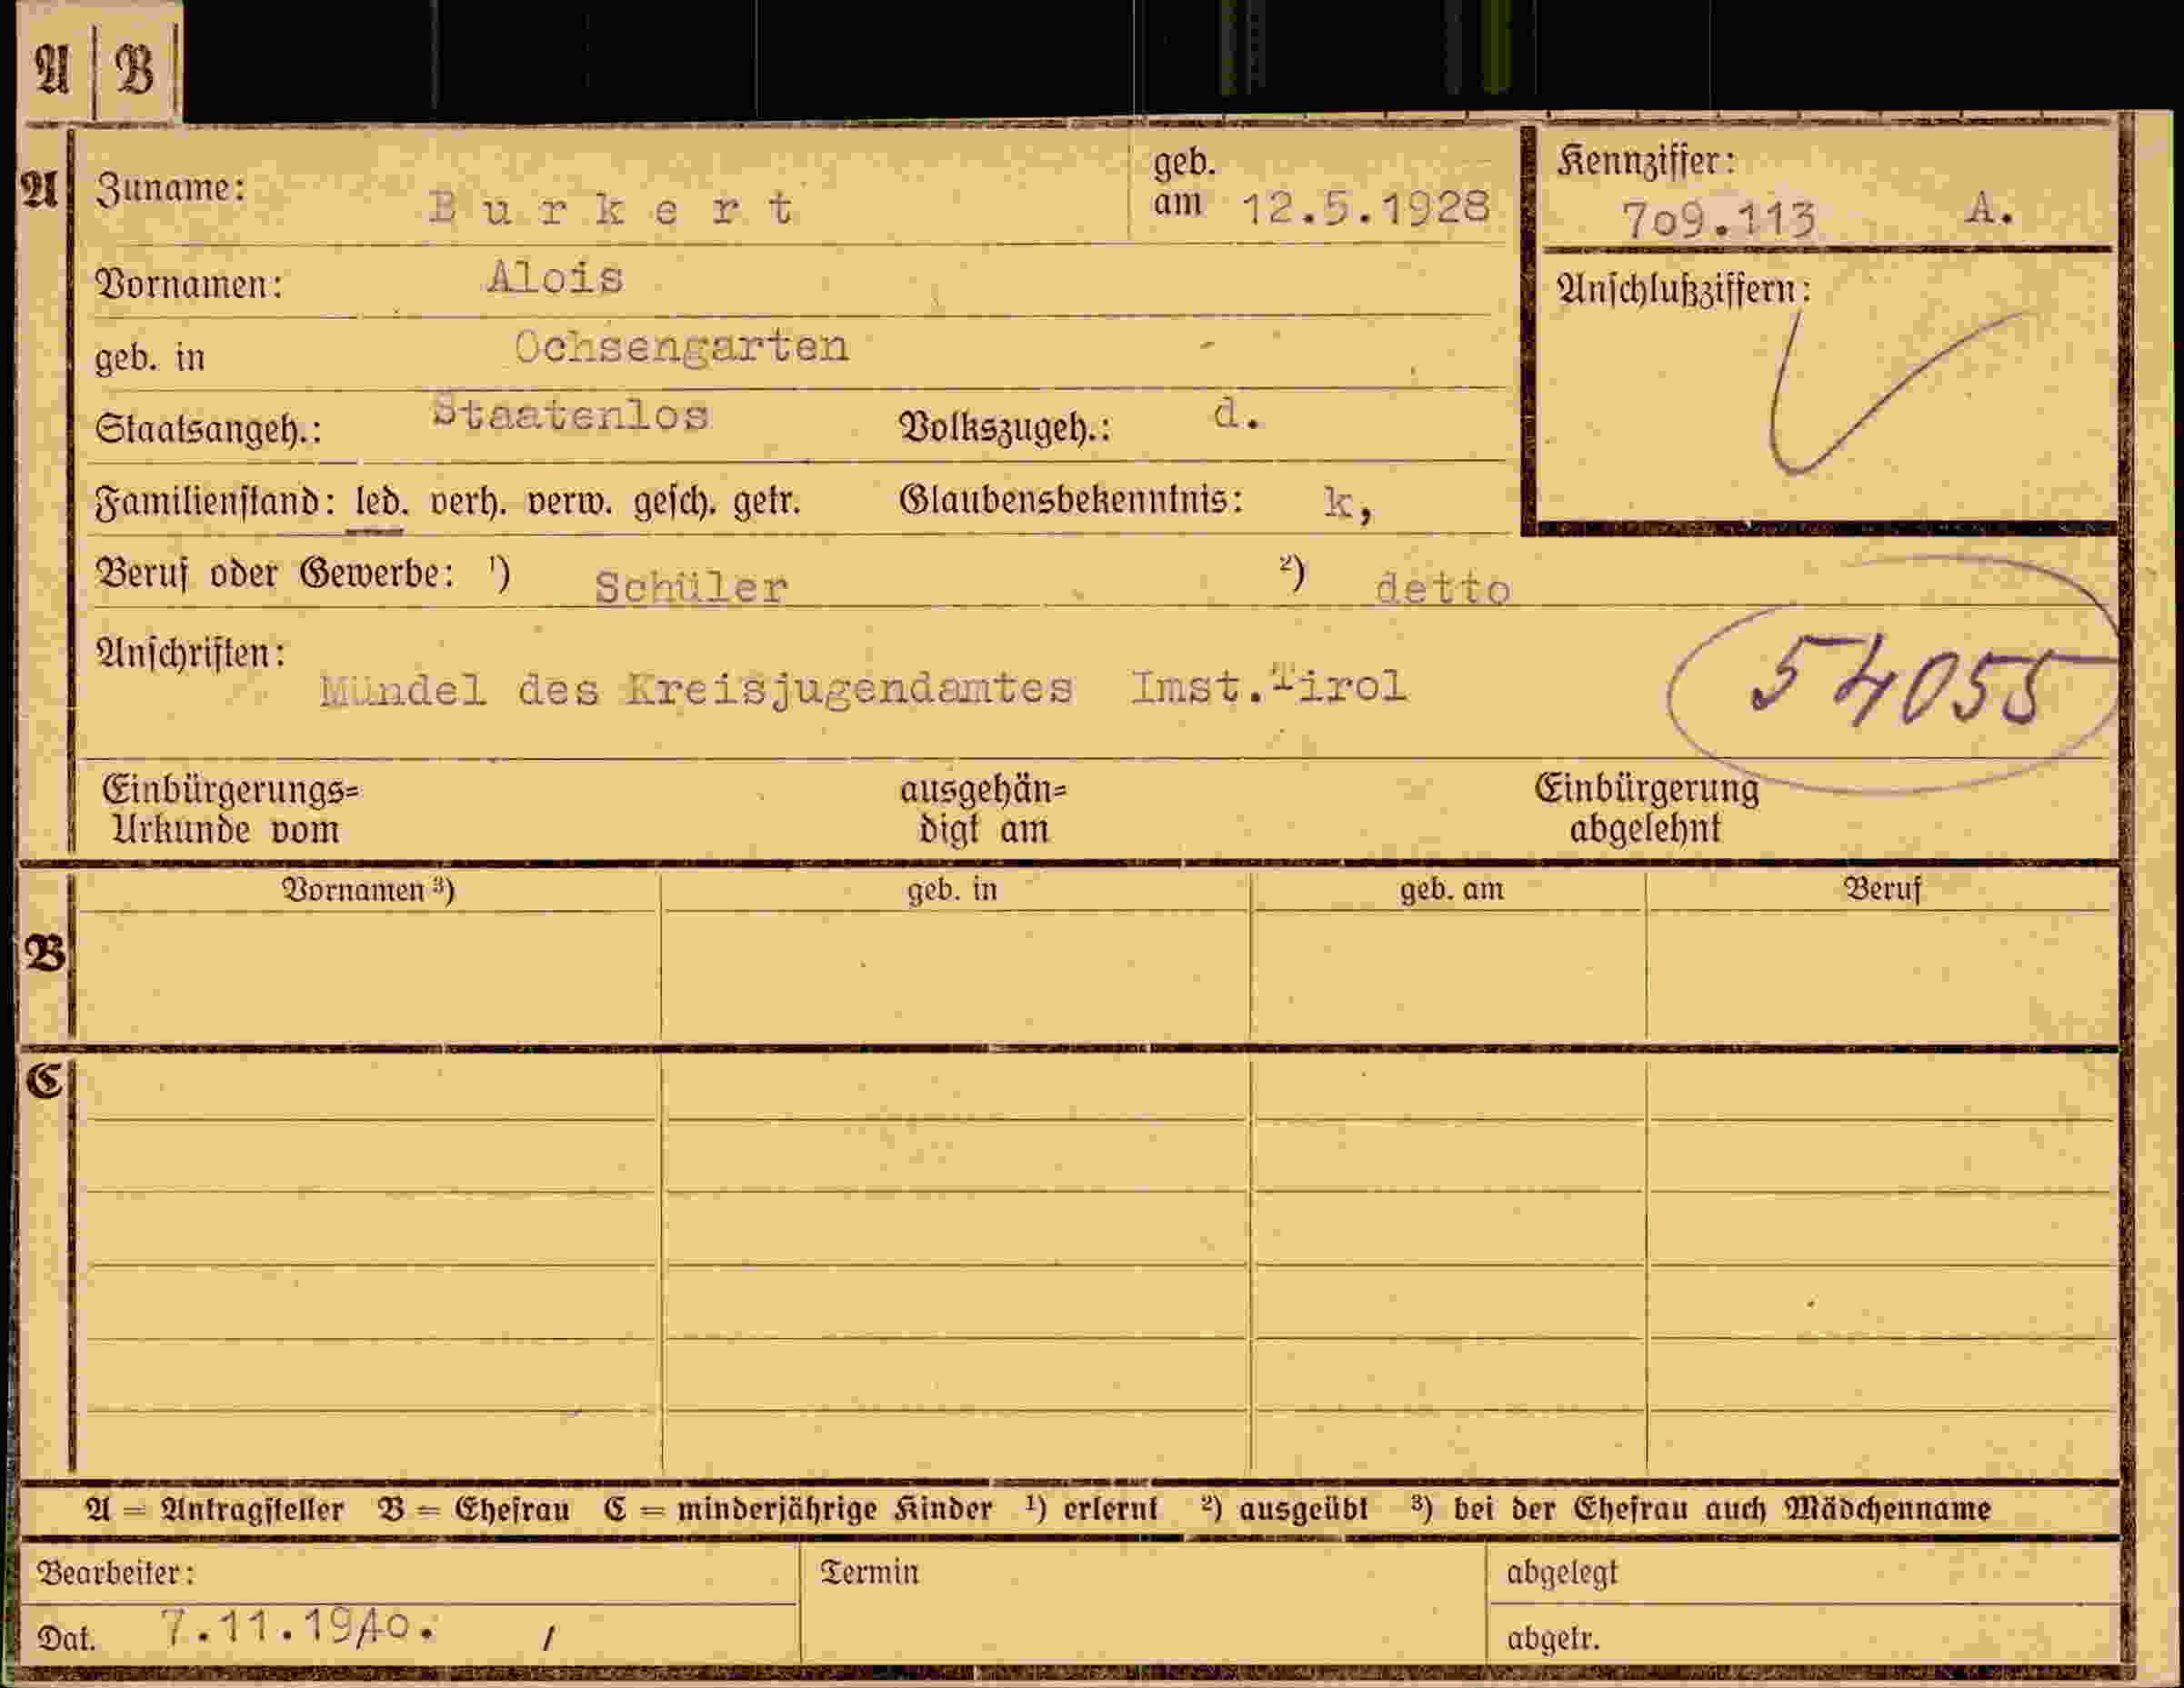 A | B
A
Zuname: Burkert geb. am 12.5.1928
Kennziffer: 709.113 A.
Vornamen: Alois
Anschlußziffern:
geb. in Ochsengarten
Staatsangeh.: Staatenlos Volkszugeh.: d.
Familienstand: led. verh. verw. gesch. getr. Glaubensbekenntnis: k,
Beruf oder Gewerbe: ¹) Schüler ²) detto
Anschriften: Mündel des Kreisjugendamtes Imst.Tirol
54055
Einbürgerungs= ausgehän= Einbürgerung
Urkunde vom digt am abgelehnt
B
Vornamen ³) geb. in geb. am Beruf
C
A = Antragsteller B = Ehefrau C = minderjährige Kinder ¹) erlernt ²) ausgeübt ³) bei der Ehefrau auch Mädchenname
Bearbeiter: Termin abgelegt
Dat. 7.11.1940. / abgetr.